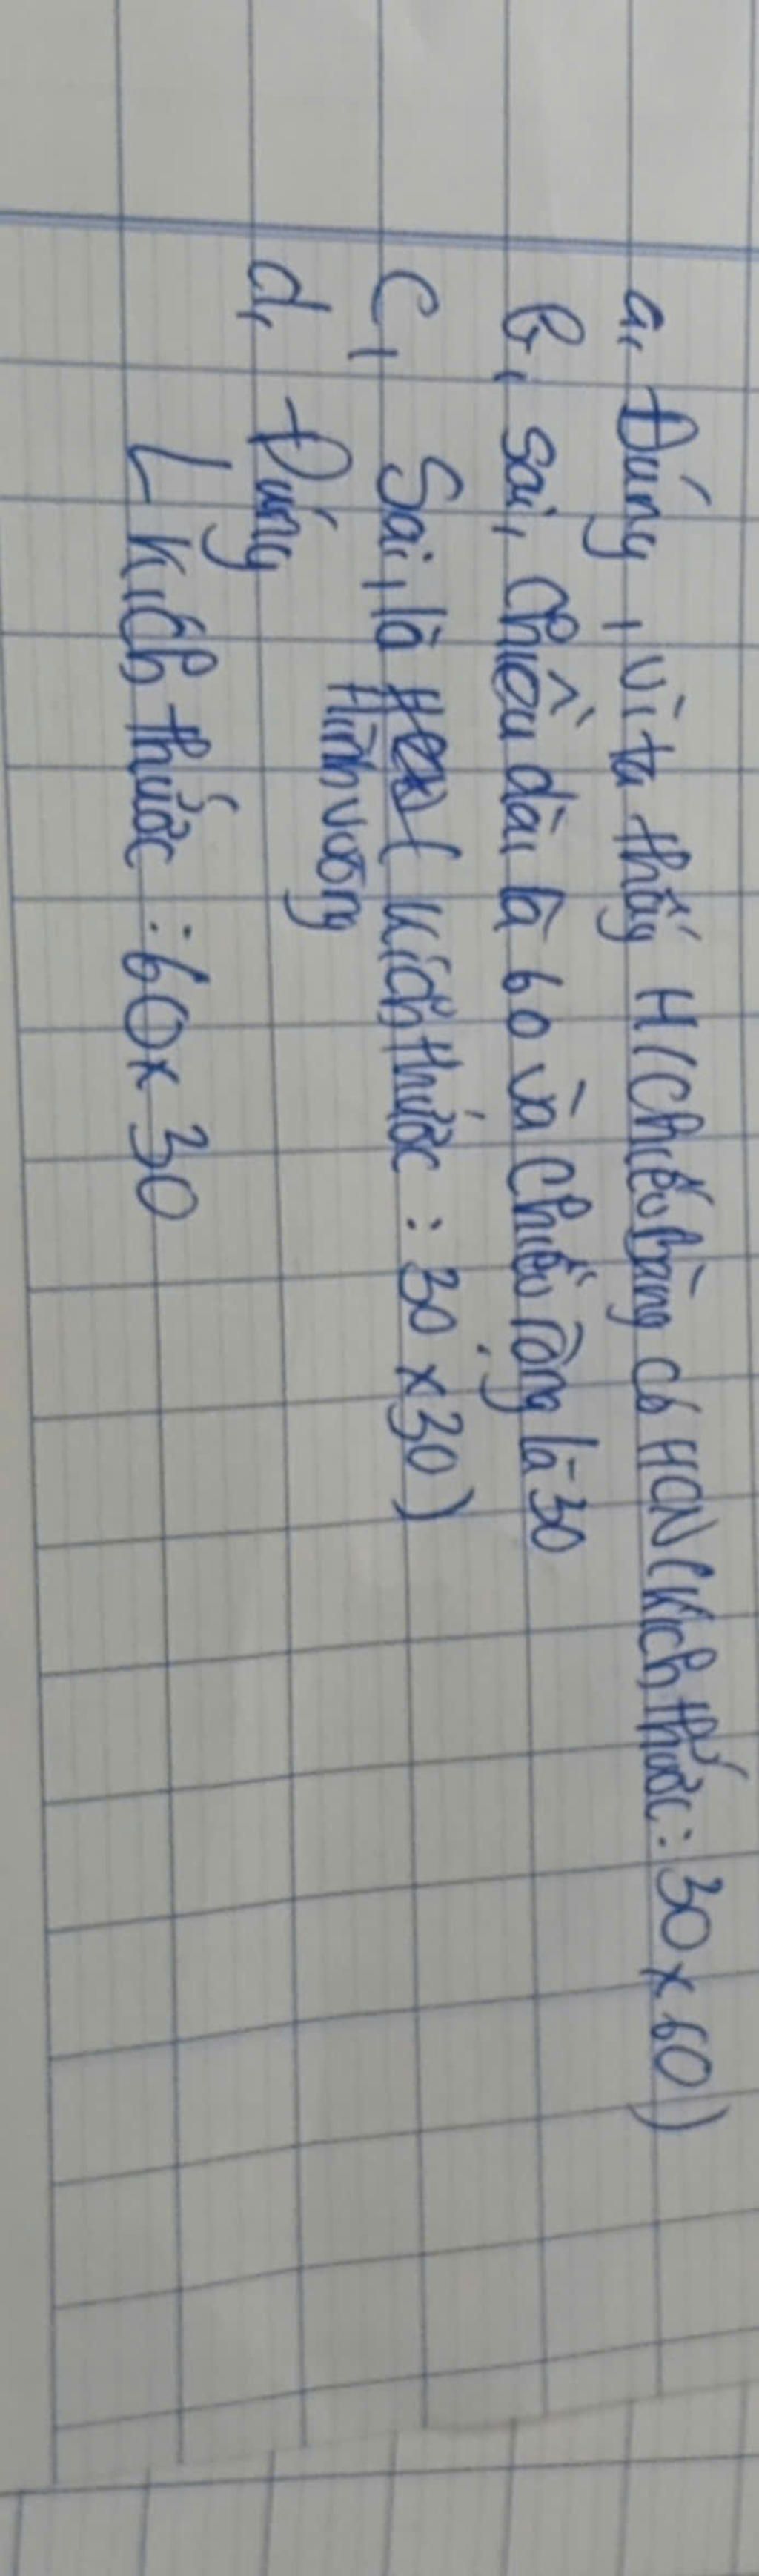 a, Đúng, vì ta thấy H/chiếu bằng có HCN (kích thước: 30 x 60)
b, Sai, chiều dài là 60 và chiều rộng là 30
c, Sai, là (kích thước: 30 x 30)
Hình vuông
d, Đúng
kích thước: 60 x 30